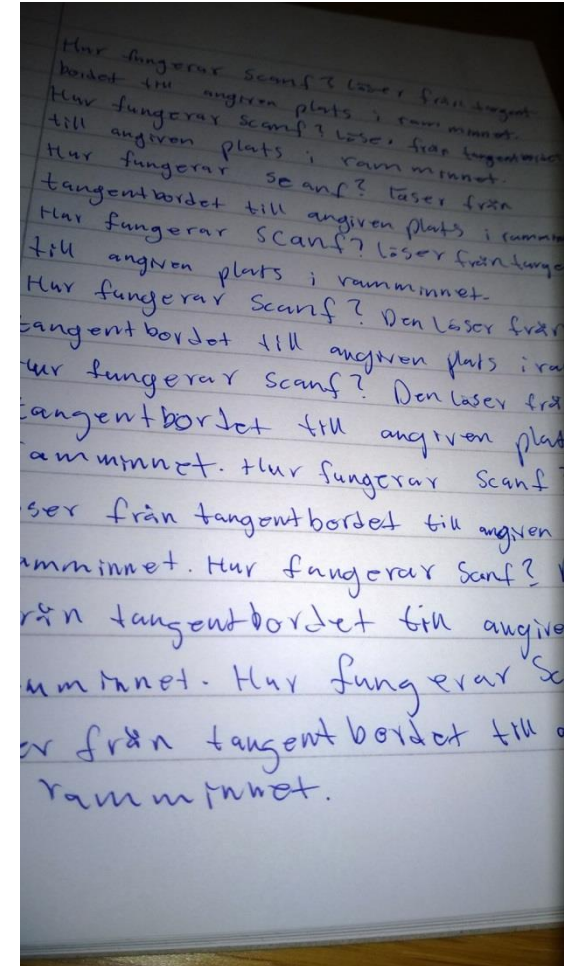 Hur fungerar scanf? Läser från tangent
bordet till angiven plats i ramminnet.
Hur fungerar scanf? Läser från tangentbordet
till angiven plats i ramminnet.
Hur fungerar scanf? Läser från
tangentbordet till angiven plats i rammin
Hur fungerar scanf? Läser från tange
till angiven plats i ramminnet.
Hur fungerar scanf? Den läser från
tangentbordet till angiven plats i ra
Hur fungerar scanf? Den läser frå
tangentbordet till angiven plat
amminnet. Hur fungerar scanf
ser från tangentbordet till angiven
amminnet. Hur fungerar sanf?
rån tangentbordet till angive
amminnet. Hur fungerar Sc
er från tangentbordet till
ramminnet.